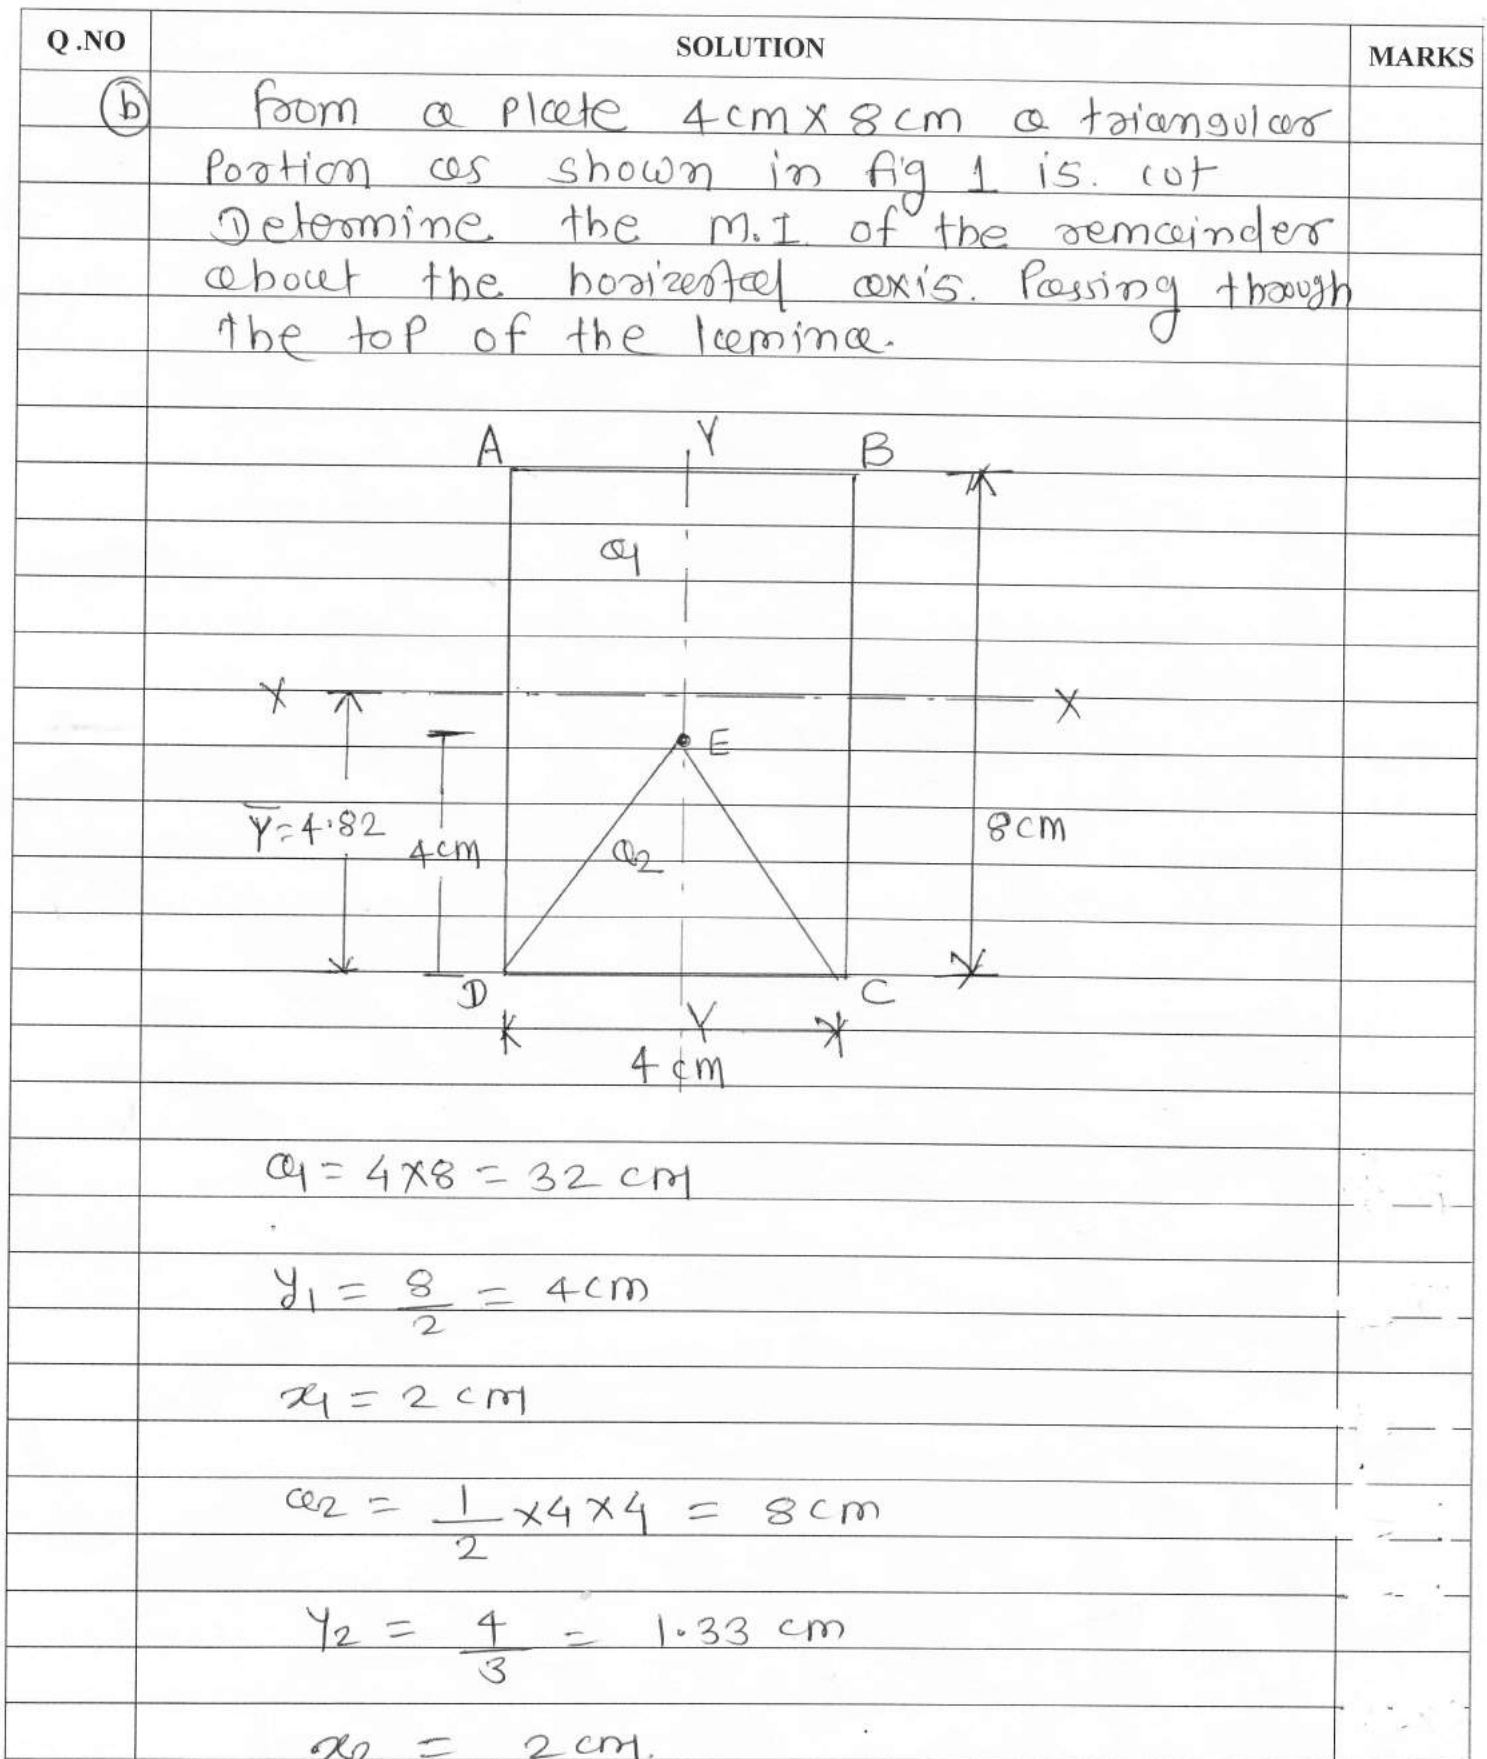 Q.NO SOLUTION MARKS
(b) From a plate 4cm x 8cm a triangular
portion as shown in fig 1 is. cut
Determine the M.I. of the remainder
about the horizental axis. Passing through
the top of the lamina.
A Y B
a1
X X
E
Y̅=4.82 4cm a2 8cm
D C
Y
4 cm
a1 = 4x8 = 32 cm
y1 = 8/2 = 4cm
x1 = 2 cm
a2 = 1/2 x4x4 = 8cm
Y2 = 4/3 = 1.33 cm
x2 = 2cm.